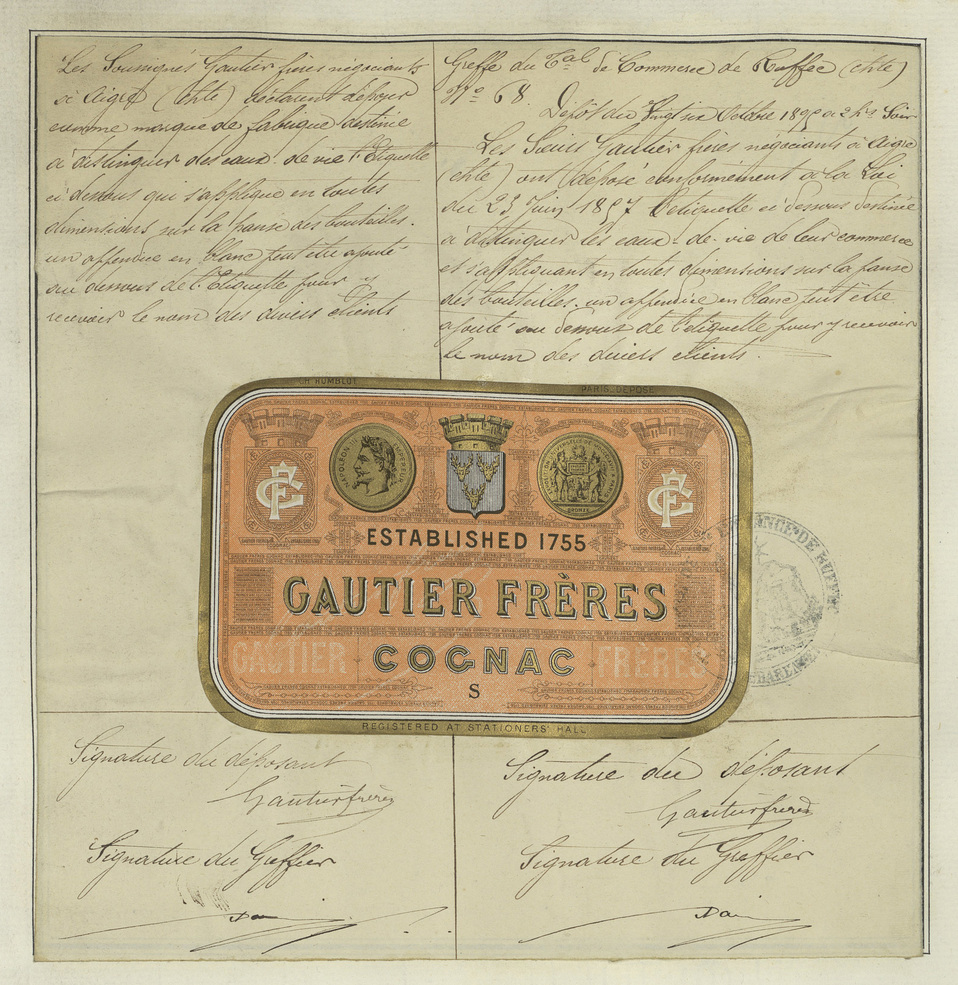 Les Soussignés Gautier frères négociants
à Aigre (Chte) déclarent déposer
comme marque de fabrique destiné
à distinguer des eaux-de-vie l'Etiquette
ci dessous qui s'applique en toutes
dimensions sur la panse des bouteilles.
un appendice en blanc peut être ajouté
au dessous de l'Etiquette pour y
recevoir le nom des divers clients
Greffe du Tal de Commerce de Ruffec (Chte)
No 68.
Dépôt du Vingt six Octobre
Les Sieurs Gautier frères négociants à Aigre
(Chte) ont déposé conformément à la Loi
du 23 Juin 1857 l'etiquette ci dessous destinée
à distinguer les eaux-de-vie de leur commerce
et s'appliquant en toutes dimensions sur la panse
des bouteilles. un appendice en blanc peut être
ajouté au dessous de l'etiquette pour y recevoir
le nom des divers clients.
CH HUMBLOT PARIS. DÉPOSÉ
NAPOLEON III EMPEREUR
BRONZE
GF GF
ESTABLISHED 1755
GAUTIER FRÈRES
GAUTIER COGNAC FRÈRES
S
REGISTERED AT STATIONERS' HALL
DE RUFFEC
Signature du déposant
Gautier frères
Signature du Greffier
Signature du déposant
Gautier frères
Signature du Greffier